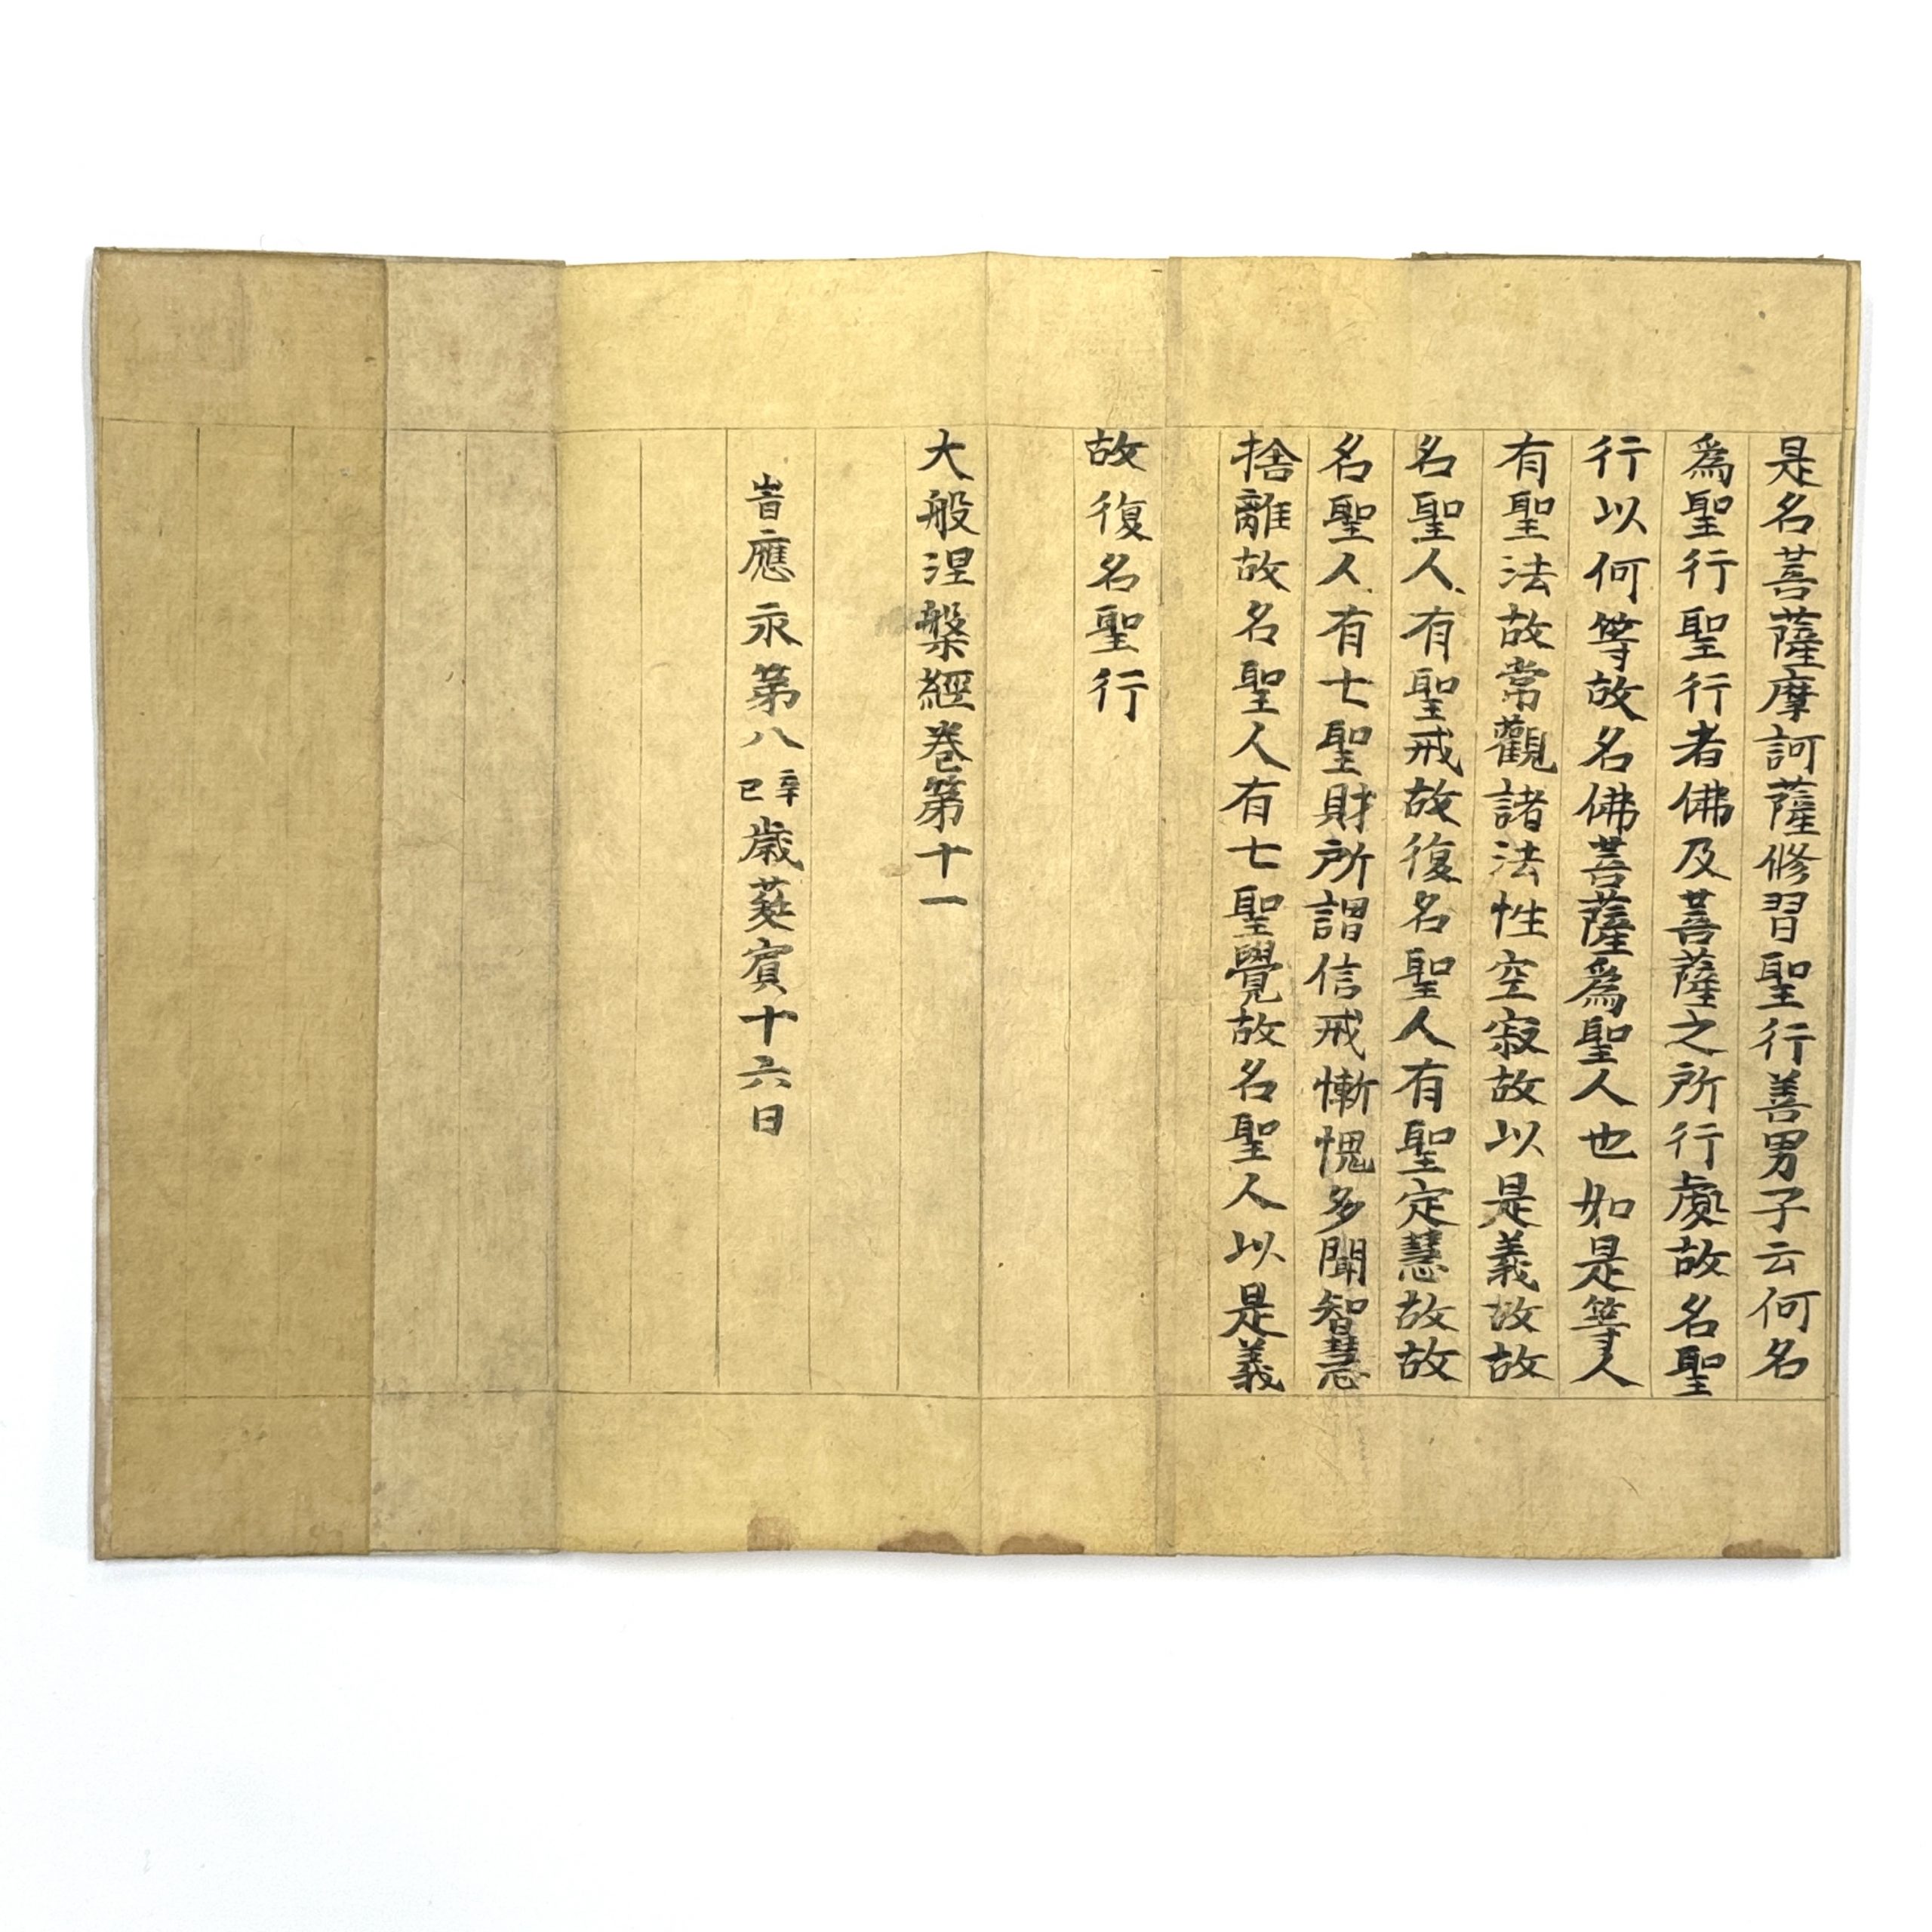 是名菩薩摩訶薩修習聖行善男子云何名
爲聖行聖行者佛及菩薩之所行處故名聖
行以何等故名佛菩薩爲聖人也如是等人
有聖法故常觀諸法性空寂故以是義故故
名聖人有聖戒故復名聖人有聖定慧故故
名聖人有七聖財所謂信戒慚愧多聞智慧
捨離故名聖人有七聖覺故名聖人以是義
故復名聖行
大般涅槃經卷第十一
旹應永第八辛巳歲蕤賓十六日